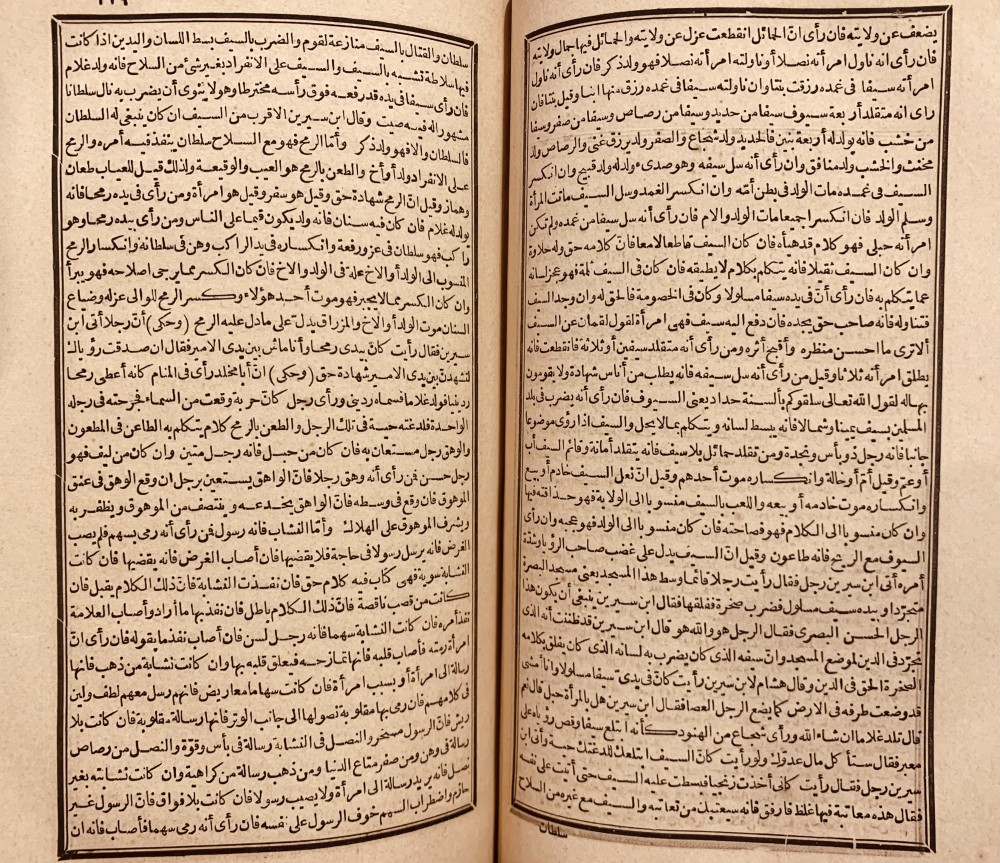 يضعف عن ولايته فان رأى ان الحمائل انقطعت عزل عن ولايته والحمائل فيها جمال ولايته
فان رأى انه ناول امرأته نصلا أو ناولته امرأته نصلا فهو ولد ذكر فان رأى أنه ناول
امرأته سيفا فى غمده رزقت بنتا وان ناولته سيفا فى غمده رزق منها ابنا وقيل بنتا فان
رأى انه متقلد أربعة سيوف سيفا من حديد وسيفا من رصاص وسيفا من صفر وسيفا
من خشب فانه يولد له أربعة بنين فالحديد ولد شجاع والصفر ولد يرزق غنى والرصاص ولد
مخنث والخشب ولد منافق وان رأى أنه سل سيفه وهو صدىء ولد له ولد قبيح وان انكسر
السيف فى غمده مات الولد فى بطن أمه وان انكسر الغمد وسلم السيف ماتت المرأة
وسلم الولد فان انكسرا جميعا مات الولد والام فان رأى أنه سل سيفا من غمده ولم تكن
امرأته حبلى فهو كلام قد هيأه فان كان السيف قاطعا لامعا فان كلامه حق وله حلاوة
وان كان السيف ثقيلا فانه يتكلم بكلام لا يطيقه فان كان فى السيف ثلمة فهو عجز لسانه
عما يتكلم به فان رأى أن فى يده سيفا مسلولا وكان فى الخصومة فالحق له وان وجد السيف
فتناوله فانه صاحب حق يجده فان دفع اليه سيف فهى امرأة لقول لقمان عن السيف
ألا ترى ما احسن منظره وأقبح أثره ومن رأى أنه متقلد سيفين أو ثلاثة فانقطعت فانه
يطلق امرأته ثلاثا وقيل من رأى أنه سل سيفه فانه يطلب من أناس شهادة ولا يقومون
بها له لقول الله تعالى سلقوكم بألسنة حداد يعنى السيوف فان رأى أنه يضرب فى بلد
المسلمين بسيف يمينا وشمالا فانه يبسط لسانه ويتكلم بما لا يحل والسيف اذا رؤى موضوعا
جانبا فانه رجل ذو بأس ونجدة ومن تقلد حمائل بلا سيف فانه يتقلد أمانة وقائم السيف أب
أو عم وقيل أم أو خالة وانكساره موت أحدهم وقيل ان نعل السيف خادم أو بيع
وانكساره موت خادمه أو بيعه واللعب بالسيف منسوبا الى الولاية فهو حذاقته فيها
وان كان منسوبا الى الكلام فهو فصاحته فان كان منسوبا الى الولد فهو عجبه وان رأى
السيوف مع الريح فانه طاعون وقيل ان السيف يدل على غضب صاحب الرؤيا وشدة
أمره أتى ابن سيرين رجل فقال رأيت رجلا قائما وسط هذا المسجد يعنى مسجد البصرة
متجردا وبيده سيف مسلول فضرب صخرة ففلقها فقال ابن سيرين ينبغى أن يكون هذا
الرجل الحسن البصرى فقال الرجل هو والله هو قال ابن سيرين قد ظننت أنه الذى
تجرد فى الدين لموضع المسجد وان سيفه الذى كان يضرب به لسانه الذى كان يفلق بكلامه
الصخرة الحق فى الدين وقال هشام لابن سيرين رأيت كان فى يدى سيفا مسلولا وانا أمشى
قد وضعت طرفه فى الارض كما يضع الرجل العصا فقال ابن سيرين هل بالمرأة حبل قال نعم
قال تلد غلاما ان شاء الله ورأى شجاع من الهنود كأنه ابتلع سيفا وقص رؤياه على
معبر فقال ستأكل مال عدوك ولو رأيت كان السيف ابتلعك للدغتك حية وأتى ابن
سيرين رجل فقال رأيت كأنى أخذت زنجيا فسطت عليه السيف حتى أتيت على نفسه
فقال هذه معاتبة فيها غلظ فارفق فانه سيعتبك من تعاتبه والسيف مع غيره من السلاح
سلطان
سلطان والقتال بالسيف منازعة لقوم والضرب بالسيف بسط اللسان واليدين اذا كانت
فيها سلاطة تشبه بالسيف والسيف على الانفراد بغير شئ من السلاح فانه ولد غلام
فان رأى سيفا فى يده قد رفعه فوق رأسه مخترطا وهو لا ينوى أن يضرب به نال سلطانا
مشهورا له فيه صيت وقال ابن سيرين الاقرب من السيف ان كان ينبغى له السلطان
فالسلطان والا فهو ولد ذكر وأما الرمح فهو مع السلاح سلطان ينفذ فيه أمره والرمح
على الانفراد ولد أو أخ والطعن بالرمح هو العيب والوقيعة ولذلك قيل للعياب طعان
وهماز وقيل ان الرمح شهادة حق وقيل هو سفر وقيل هو امرأة ومن رأى فى يده رمحا فانه
يولد له غلام فان كان فيه سنان فانه ولد يكون قيما على الناس ومن رأى بيده رمحا وهو
راكب فهو سلطان فى عز ورفعة وانكساره فى يد الراكب وهن فى سلطانه وانكسار الرمح
المنسوب الى الولد أو الاخ علة فى الولد والاخ فان كان الكسر مما يرجى اصلاحه فهو يبرأ
وان كان الكسر مما لا يجبر فهو موت أحد هؤلاء وكسر الرمح للوالى عزله وضياع
السنان موت الولد أو الاخ والمزراق يدل على ما دل عليه الرمح (وحكى) ان رجلا أتى ابن
سيرين فقال رأيت كان بيدى رمحا وأنا ماش بين يدى الامير فقال ان صدقت رؤياك
لتشهدن بين يدى الامير شهادة حق (وحكى) ان أبا مخلد رأى فى المنام كأنه أعطى رمحا
ردينيا فولد غلاما فسماه ردينى ورأى رجل كان حربة وقعت من السماء فجرحته فى رجله
الواحدة فلدغته حية فى تلك الرجل والطعن بالرمح كلام يتكلم به الطاعن فى المطعون
والوهق رجل مستعان به فان كان من حبل فانه رجل متين وان كان من ليف فهو
رجل حسن فمن رأى أنه وهق رجلا فان الواهق يستعين برجل ان وقع الوهق فى عنق
الموهوق فان وقع فى وسطه فان الواهق يخدعه وينتصف من الموهوق ويظفر به
ويشرف الموهوق على الهلاك وأما النشاب فانه رسول فمن رأى أنه رمى بسهم فلم يصب
الغرض فانه يرسل رسولا فى حاجة فلا يقضيها فان أصاب الغرض فانه يقضيها فان كانت
النشابة سوية فهى كتاب فيه كلام حق فان نفذت النشابة فان ذلك الكلام يقبل فان
كانت من قصب ناقصة فان ذلك الكلام باطل فان نفذ بها ما أراد وأصاب العلامة
نفذ أمره فان كانت النشابة سهما فانه رجل لسن فان أصاب نفذ ما يقوله فان رأى ان
امرأة رمته فأصاب قلبه فانها تمازحه فيعلق قلبه بها وان كانت نشابة من ذهب فانها
رسالة الى امرأة أو بسبب امرأة فان كانت سهاما معاريض فانهم رسل معهم لطف ولين
فى كلامهم فان رمى بها مقلوبة نصولها الى جانب الوتر فانها رسالة مقلوبة فان كانت بلا
ريش فان الرسول مسخر والنصل فى النشابة رسالة فى بأس وقوة والنصل من رصاص
رسالة فى وهن ومن صفر متاع الدنيا ومن ذهب رسالة من كراهية وان كانت نشابته بغير
نصل فانه يريد رسالة الى امرأة ولا يصيب رسولا فان كانت بلا فواق فان الرسول غير
حازم واضطراب السهم خوف الرسول على نفسه فان رأى أنه رمى سهما فأصاب فانه ان